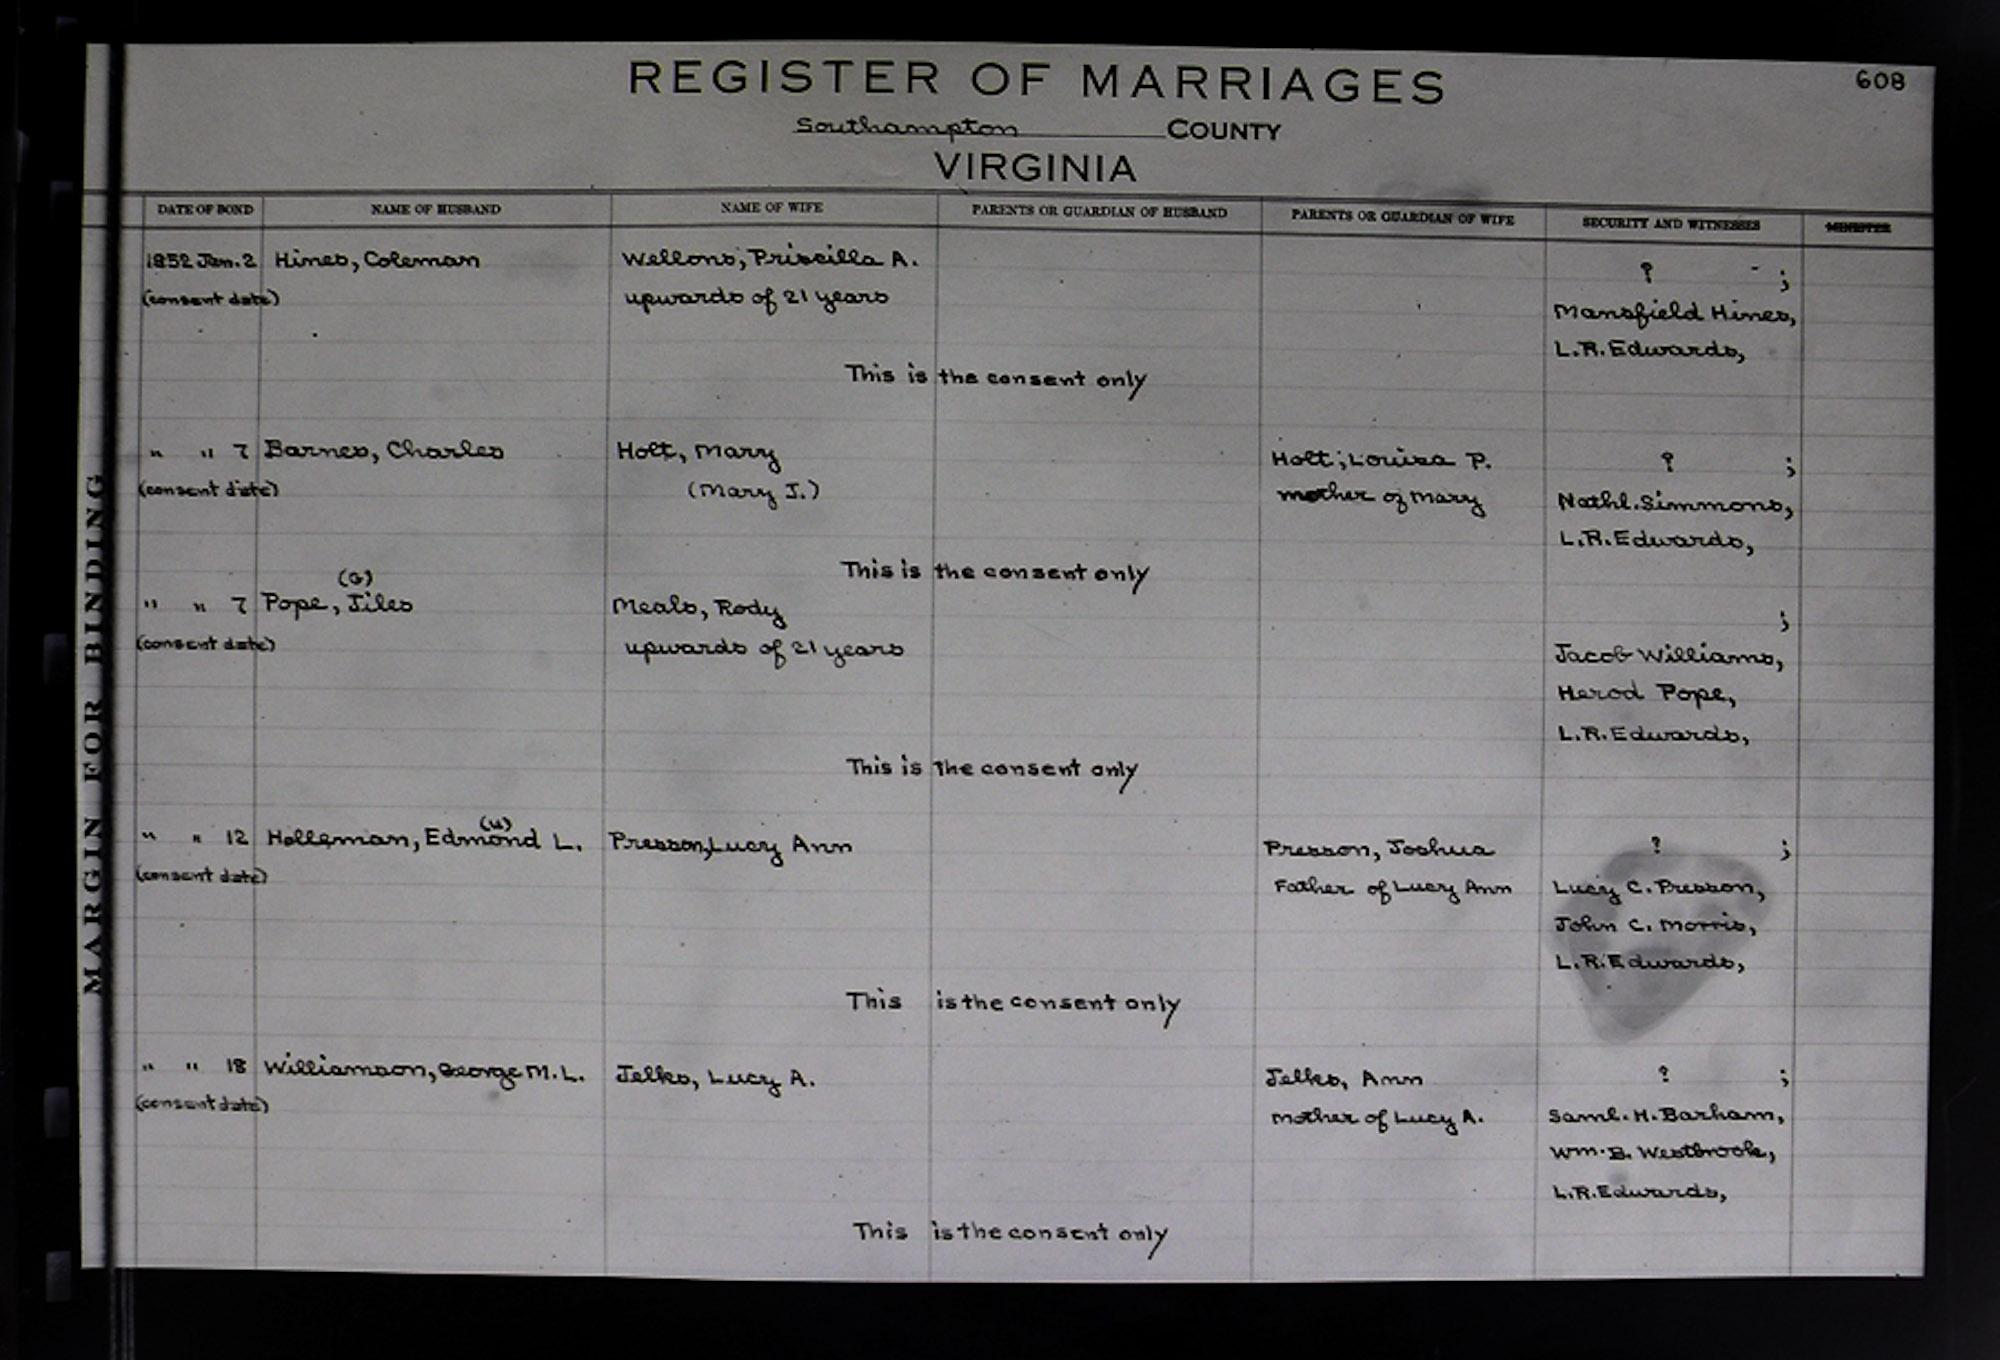 REGISTER OF MARRIAGES
608
Southampton COUNTY
VIRGINIA
DATE OF BOND NAME OF HUSBAND NAME OF WIFE PARENTS OR GUARDIAN OF HUSBAND PARENTS OR GUARDIAN OF WIFE SECURITY AND WITNESSES MINISTER
1852 Jan. 2 Hines, Coleman Wellons, Priscilla A. ? - ;
(consent date) upwards of 21 years Mansfield Hines,
L.R. Edwards,
This is the consent only
" " 7 Barnes, Charles Holt, Mary Holt, Louisa P. ? ;
(consent date) (Mary J.) mother of Mary Nathl. Simmons,
L.R. Edwards,
This is the consent only
(G)
" " 7 Pope, Jiles Meals, Rody ;
(consent date) upwards of 21 years Jacob Williams,
Herod Pope,
L.R. Edwards,
This is the consent only
(u)
" " 12 Holleman, Edmond L. Presson, Lucy Ann Presson, Joshua ? ;
(consent date) Father of Lucy Ann Lucy C. Presson,
John C. Morris,
L.R. Edwards,
This is the consent only
" " 18 Williamson, George M. L. Jelks, Lucy A. Jelks, Ann ? ;
(consent date) mother of Lucy A. Saml. H. Barham,
Wm. B. Westbrook,
L.R. Edwards,
This is the consent only
MARGIN FOR BINDING